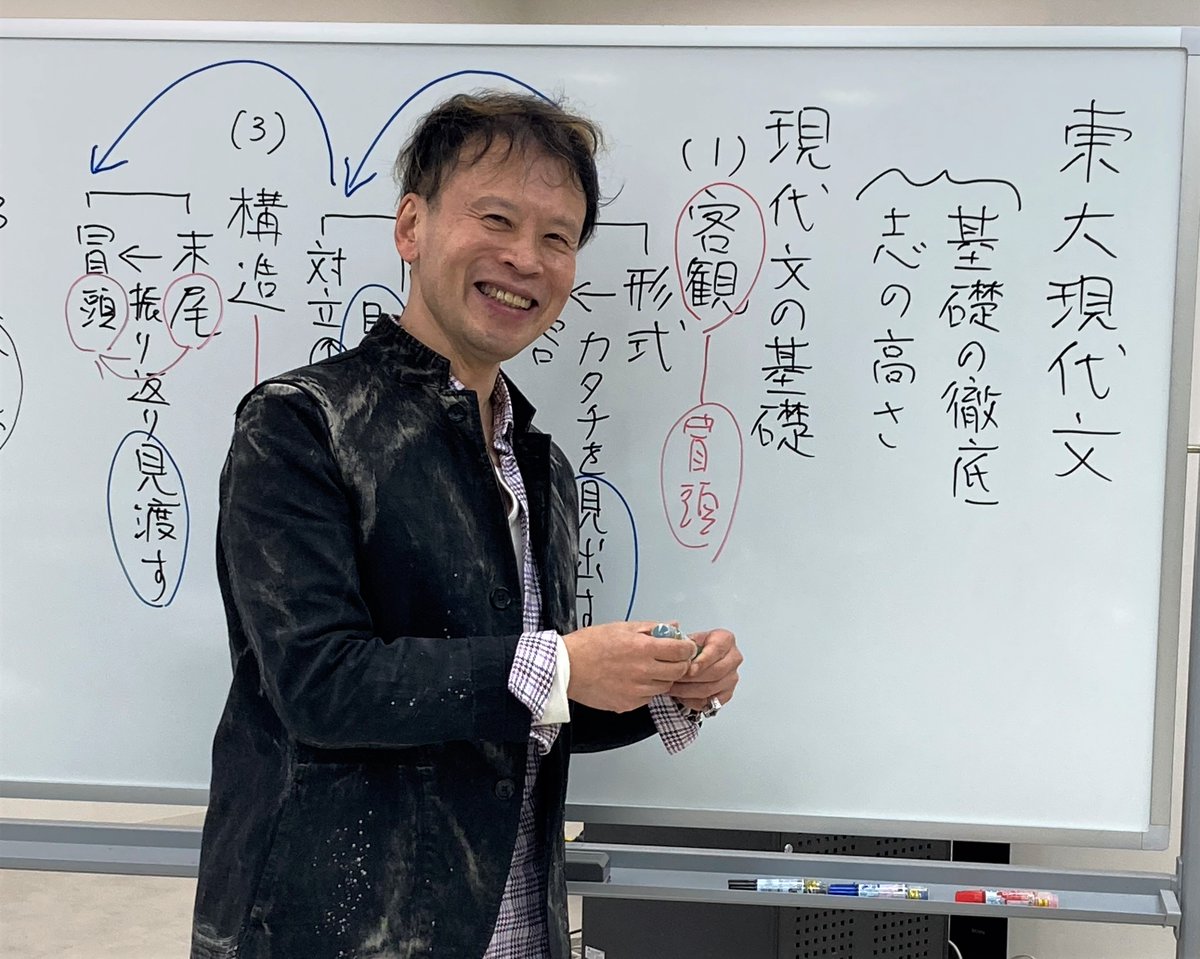 東大現代文
基礎の徹底
志の高さ
現代文の基礎
(1)
客観
冒頭
形式
←カタチを見出す
対立
(3)
構造
末尾
←振り返り見渡す
冒頭